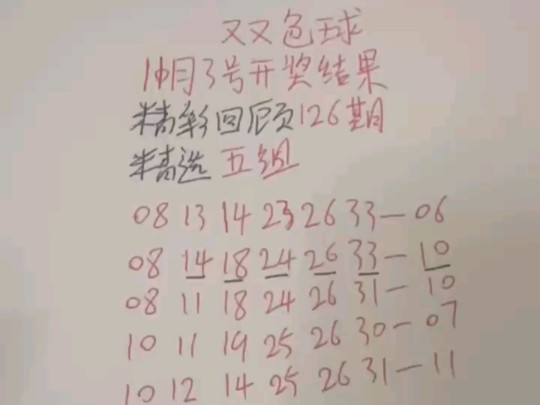 双色球
11月3号开奖结果
精彩回顾126期
精选五组
08 13 14 23 26 33—06
08 14 18 24 26 33—10
08 11 18 24 26 31—10
10 11 19 25 26 30—07
10 12 14 25 26 31—11